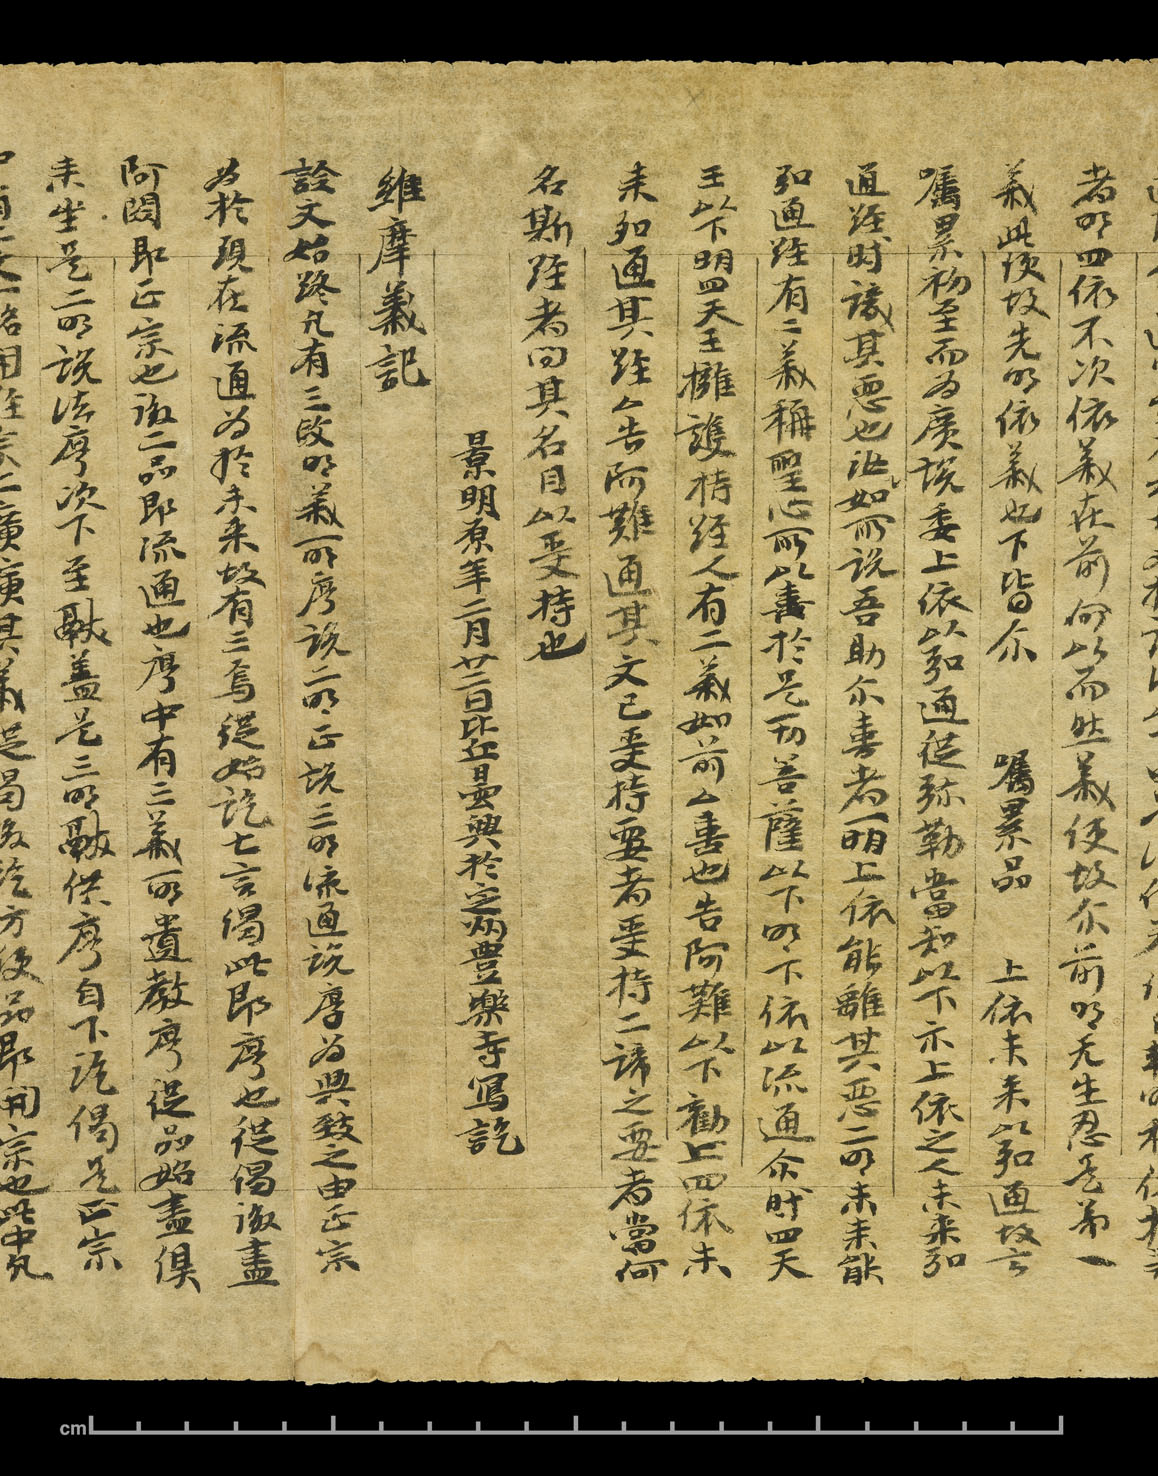 者明四依不次依義在前何以而然義使故尒前明无生忍是第一
義此須故先明依義也下皆尒 囑累品 上依未來以弘通故言
囑累初至而為廣說委上依以弘通從弥勒當知以下示上依之人未來弘
通經財議其惡也汝如所說吾助尒喜者一明上依能離其惡二明未來能
弘通經有二義稱聖心所以喜於是一切菩薩以下明下依以流通尒時四天
王以下明四天王擁護持經人有二義如前亼善也告阿難以下勸上四依未
來弘通其經亼告阿難通其文已受持要者受持二諦之要者當何
名斯經者問其名目以受持也
景明原年二月廿二日比丘曇興於定州豐樂寺寫訖
維摩義記
詮文始終凡有三段明義一明序說二明正說三明流通說序為興致之由正宗
為於現在流通為於未來故有三焉從始訖七言偈此即序也從偈後盡
阿閦即正宗也後二品即流通也序中有二義一明遺教序從品始盡俱
來坐是二明說法序次下至獻盖是三明獻供序自下訖偈是正宗